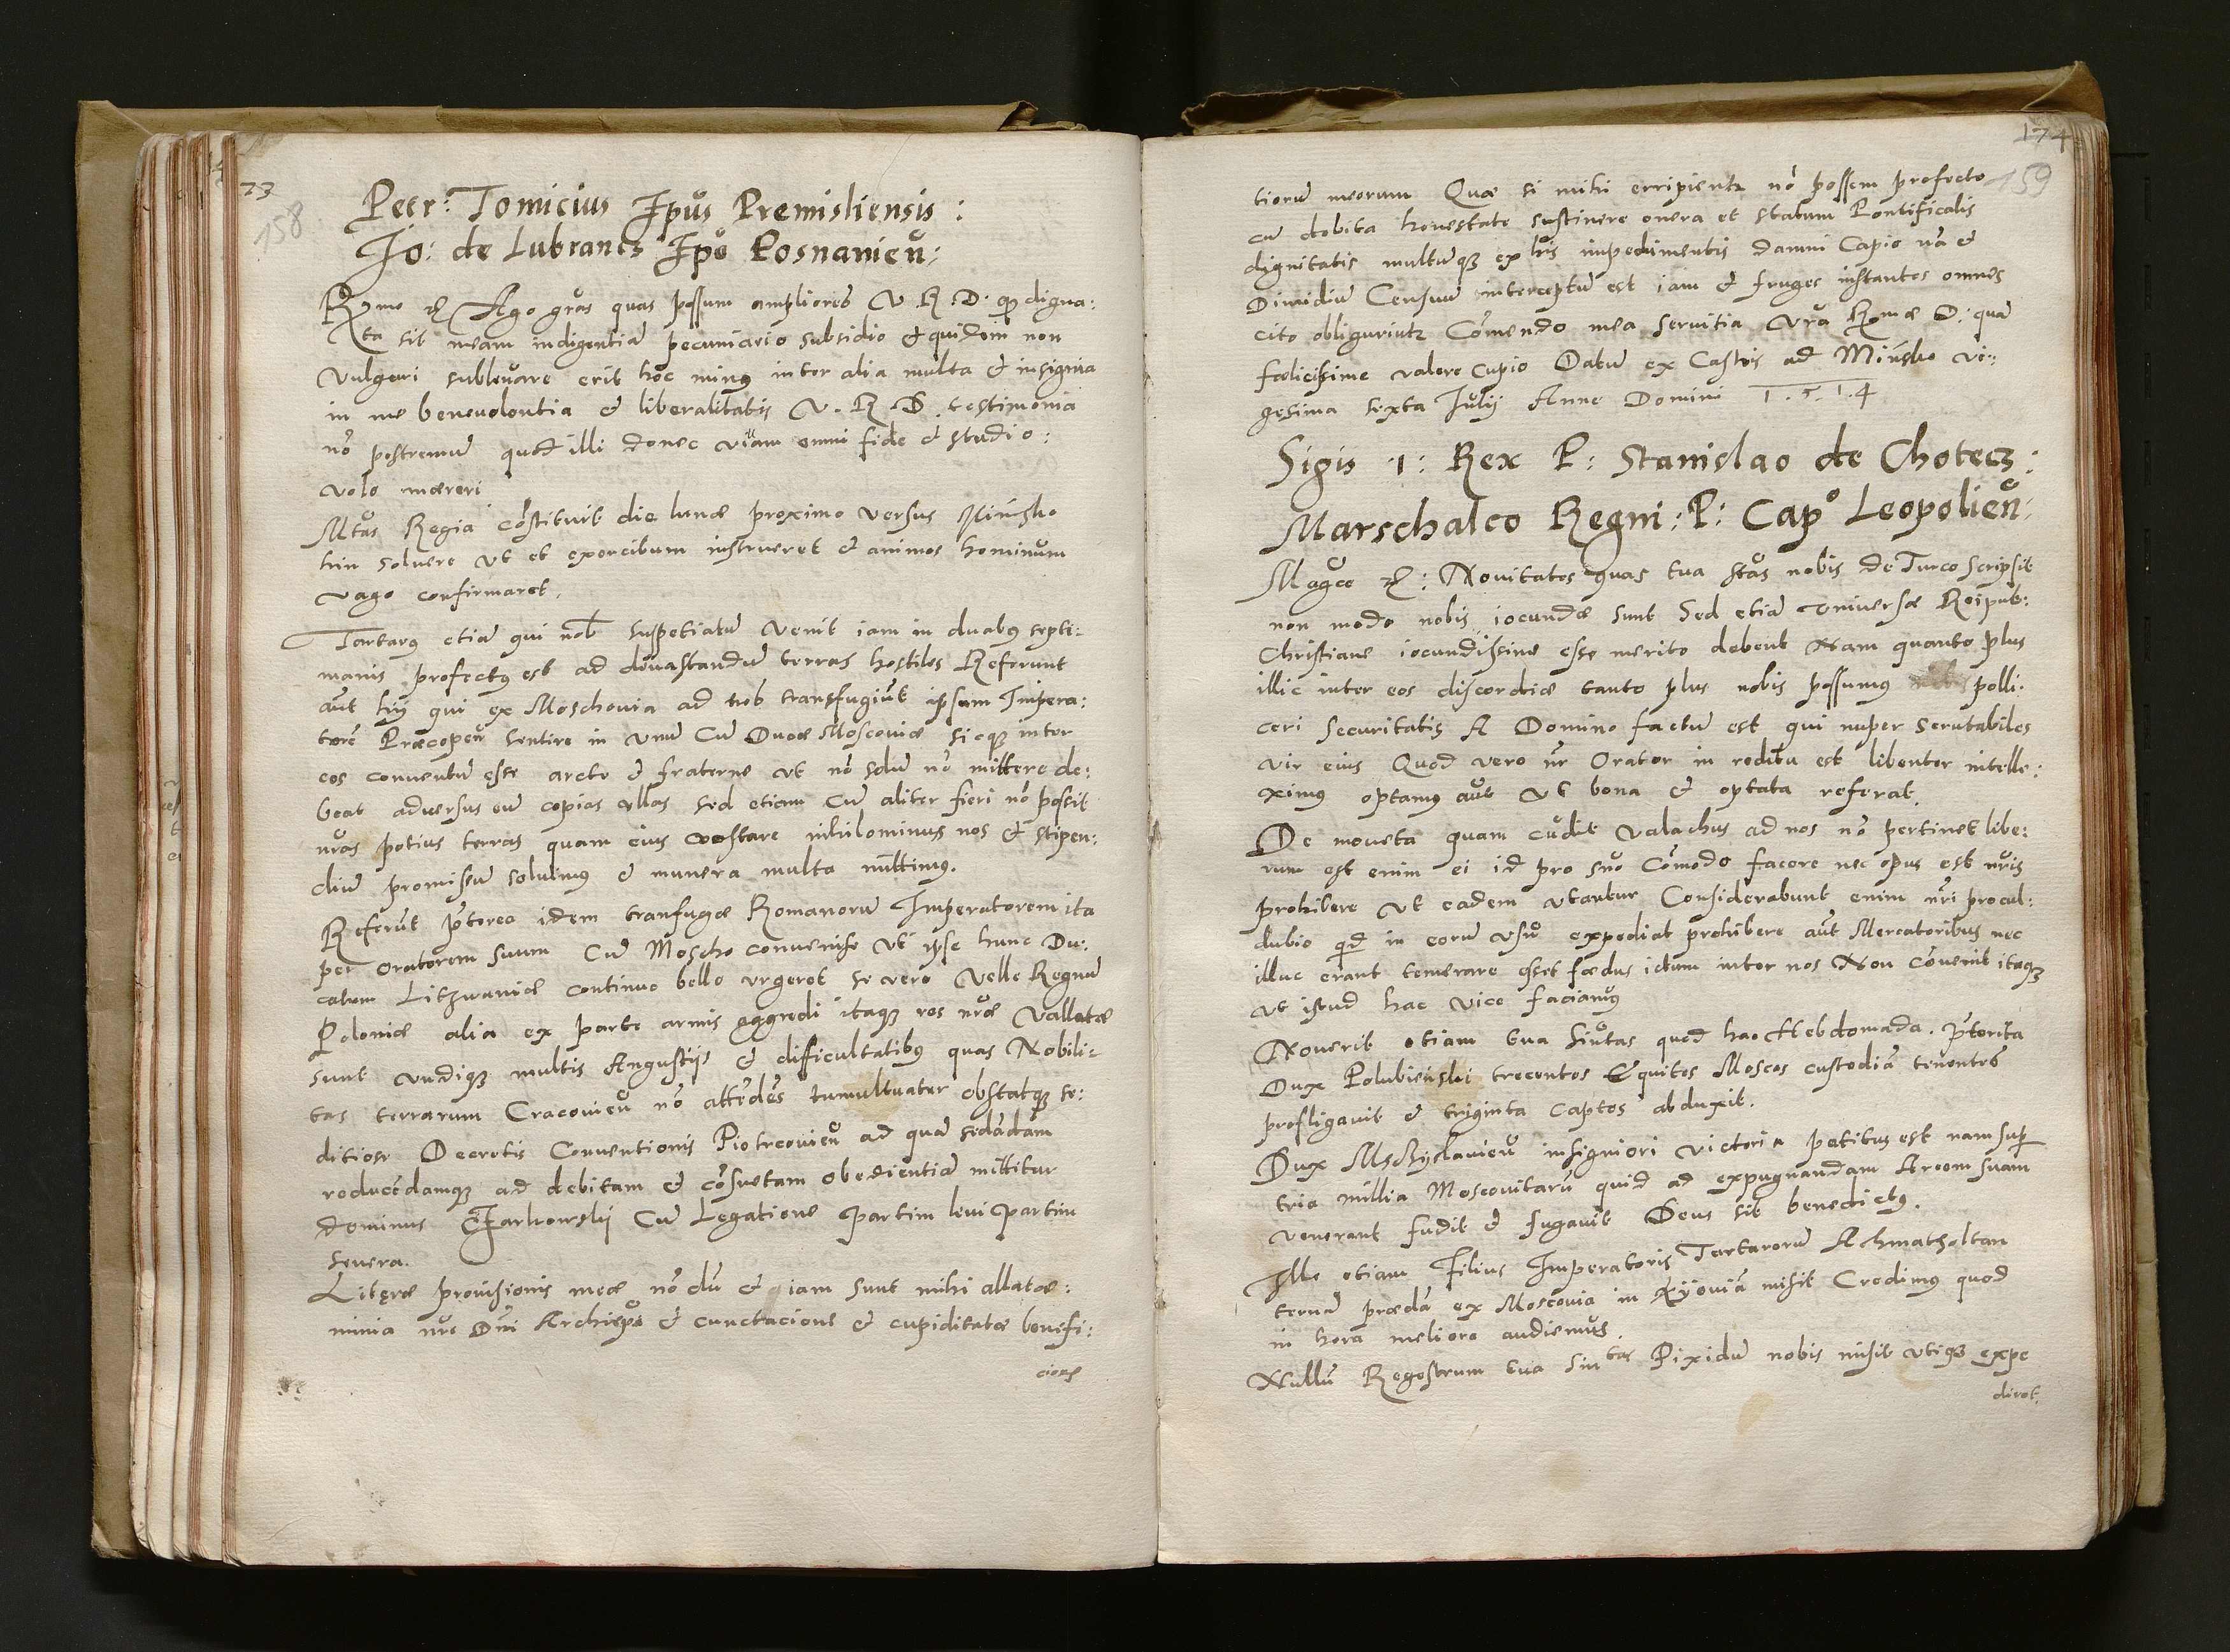 73
158
Petr: Tomicius Epũs Premisliensis:
Jo: de Lubrancz Epõ Posnanieñ:
Rmo etc Ago grãs quas possum ampliores V R D. qp digna:
ta sit meam indigentiã pecuniario subsidio et quidem non
vulgari sublevare erit hoc minus inter alia multa et insignia
in me benevolentia et liberalitatis V. R. D. testimonia
nõ postremũ quod illi donec vivam omni fide et studio:
volo mæreri
Mtas Regia cõstituit die lunæ proximo versus Minsko
hin solvere ut et exercitum instrueret et animos hominum
vago confirmaret.
Tartarus etiã qui nob suppetiatum venit iam in duabus septi-
manis profectus est ad devastandũ terras hostiles Referunt
aũt hij qui ex Moschovia ad nob transfugiũt ipsum Impera:
torẽ Præcopeñ sentire in unũ Cũ Duce Moscoviæ sicque inter
eos conventũ esse arcte et fraterne ut nõ solũ nõ mittere de:
beat adversus eũ copias ullas sed etiam Cũ aliter fieri nõ possit
nrãs potius terras quam eius vastare nihilominus nos et stipen:
diũ promissũ solvimus et munera multa mittimus.
Referũt pterea idem tranfugæ Romanorũ Imperatorem ita
per oratorem suum Cũ Moscho convenisse ut ipse hunc Du:
catum Litzwaniæ continuo bello urgeret se vero velle Regnũ
Poloniæ alia ex parte armis aggredi itaque res nrãe vallatæ
sunt undique multis Angustijs et difficultatibus quas Nobili-
tas terrarum Cracovieñ nõ attẽdẽs tumultuatur obstatque se:
ditiose Decretis Conventionis Piotrcovieñ ad quã sedãdam
reducẽdamque ad debitam et cõsuetam obedientiã mittitur
dominus Jarkowskij Cũ Legatione partim levi partim
severa.
Literæ provisionis meæ nõ dũ et iam sunt mihi allatæ:
minia nre Dñi Archiepõ et cunctacione et cupiditatæ benefi:
cioru
174
159
tiorũ meorum Quæ si mihi erripientur nõ possem profecto
cũ debita honestate sustinere onera et statum Pontificalis
dignitatis multũque ex his impedimentis Damni Capio nã et
Dimidiũ Censuũ interceptũ est iam et fruges instantes omnes
cito obliguriũtur Cõmendo mea servitia Vrã Rmæ D: quã
fœlicissime valere cupio Datũ ex Castris ad Minsko vi-
gesima sexta Julij Anno Domini 1.5.1.4
Sigis 1: Rex P: Stanislao de Chotecz:
Marschalco Regni: P: Capo Leopolieñ:
Magce etc: Novitates quas tua Stas nobis de Turco scripsit
non modo nobis iocundæ sunt Sed etiã universæ Reipub:
Christiane iocundissime esse merito debent Nam quanto plus
illic inter eos discordiæ tanto plus nobis possumus polli-
ceri securitatis A Domino factũ est qui nuper scrutabiles
vir eius Quod vero nr̃ Orator in reditu est libenter intelle:
ximus optamus aũt ut bona et optata referat.
De moneta quam cudit Valachus ad nos nõ pertinet libe:
rum est enim ei id pro suo Cõmodo facere nec opus est nr̃is
prohibere ut eadem utantur Considerabunt enim nr̃i procul:
dubio qd in eorũ usũ expediat prohibere aũt Mercatoribus nec
illuc erant temerare esset fœdus ictum inter nos Non cõvenit itaque
ut istud hac vice faciamus
Noverit etiam tua Sĩctas quod hac Hebdomada. pterita
Dux Polubieński trecentos Equites Moscos custodiã tenentes
profligavit et triginta captos abduxit.
Dux Mschyslavieñ insigniori victoria potitus est nam sup
tria millia Moscovitarũ quid ad expugnandam Arcem suam
venerant fudit et fugavit Deus sit benedictus.
Ille etiam Filius Imperatoris Tartarorũ Achmatholtan
ternã prædã ex Moscovia in Kyioviã misit Credimus quod
in hora meliora audiemus.
Nullũ Regestrum tua Sintas Pixidũ nobis misit utique expe
diret.